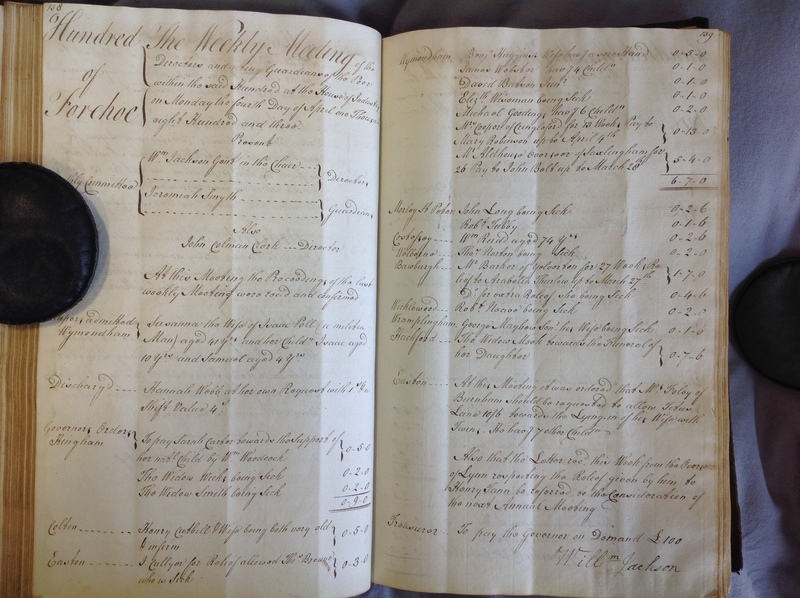 138
Hundred
of
Forehoe
The Weekly Meeting of the
Directors and acting Guardians of the Poor
within the said Hundred at the House of Industry
on Monday the fourth Day of April one Thousand
eight Hundred and three
Present
Wm Jackson Gent in the Chair
Directors
Committee
Jeremiah Smyth
Guardians
Also
John Colman Clerk Director
At this Meeting the Proceedings of the last
weekly Meeting were read and confirmed
Paupers admitted
Wymondham
Susanna the Wife of Isaac Poll (a militia
Man) aged 41 Yrs and her Childn Isaac aged
10 Yrs and Samuel aged 4 Yrs
Discharg'd
Hannah Webb at her own Request with
Shift Valued 4s
Governors Orders
Hingham
To pay Sarah Carter towards the Support of
her natl Child by Wm Woodcock
0-5-0
The Widow Wicks being Sick 0-2-0
The Widow Smith being Sick 0-2-0
0-9-0
Colton
Henry Cutbill & Wife being both very old
& infirm
0-5-0
Easton
J Cullyer for Relief allowed Thos Browne
who is Sick
0-3-0
139
Wymondham
Benj Huggins Wife 0-5-0
James Webster has 4 Childn 0-1-0
David Barnes Senr 0-1-0
Elizth Wiseman being Sick 0-1-0
Michael Gooding has 6 Childn 0-2-0
Mr Cooper of Cringleford for 13 Weeks Pay to
Mary Robinson up to April 4th
0-13-0
Mr Aldhouse Overseer of Saxlingham for
26 Pay to John Bolt up to March 28
5-4-0
6-7-0
Morley St Peter John Long being Sick 0-2-6
Robt Tubby 0-1-6
Costessey Wm Reid aged 74 Yrs 0-2-6
Welborne Thos Norton being Sick 0-2-0
Bawburgh Mr Barker of Yelverton for 27 Weeks Re
lief to Arabella Thurlow up to March 27th
1-7-0
Do for extra Relief She being Sick 0-4-6
Wicklewood Robt Reeve being Sick 0-2-0
Wramplingham George Mayhew Senr his Wife being Sick 0-1-0
Hackford The Widow Mook towards the Funeral of
her Daughter
0-7-6
Easton At this Meeting it was ordered that Mr Foley of
Burnham should be requested to allow Tobias
Lane 10/6 towards the Lying in of his Wife with
Twins. He has 7 other Childn
Also that the Letter recd this Week from the Overseers
of Lynn respecting the Relief given by them to
Henry Tann be referred to the Consideration of
the next Annual Meeting
Treasurer To pay the Governor on Demand £100
Willm Jackson